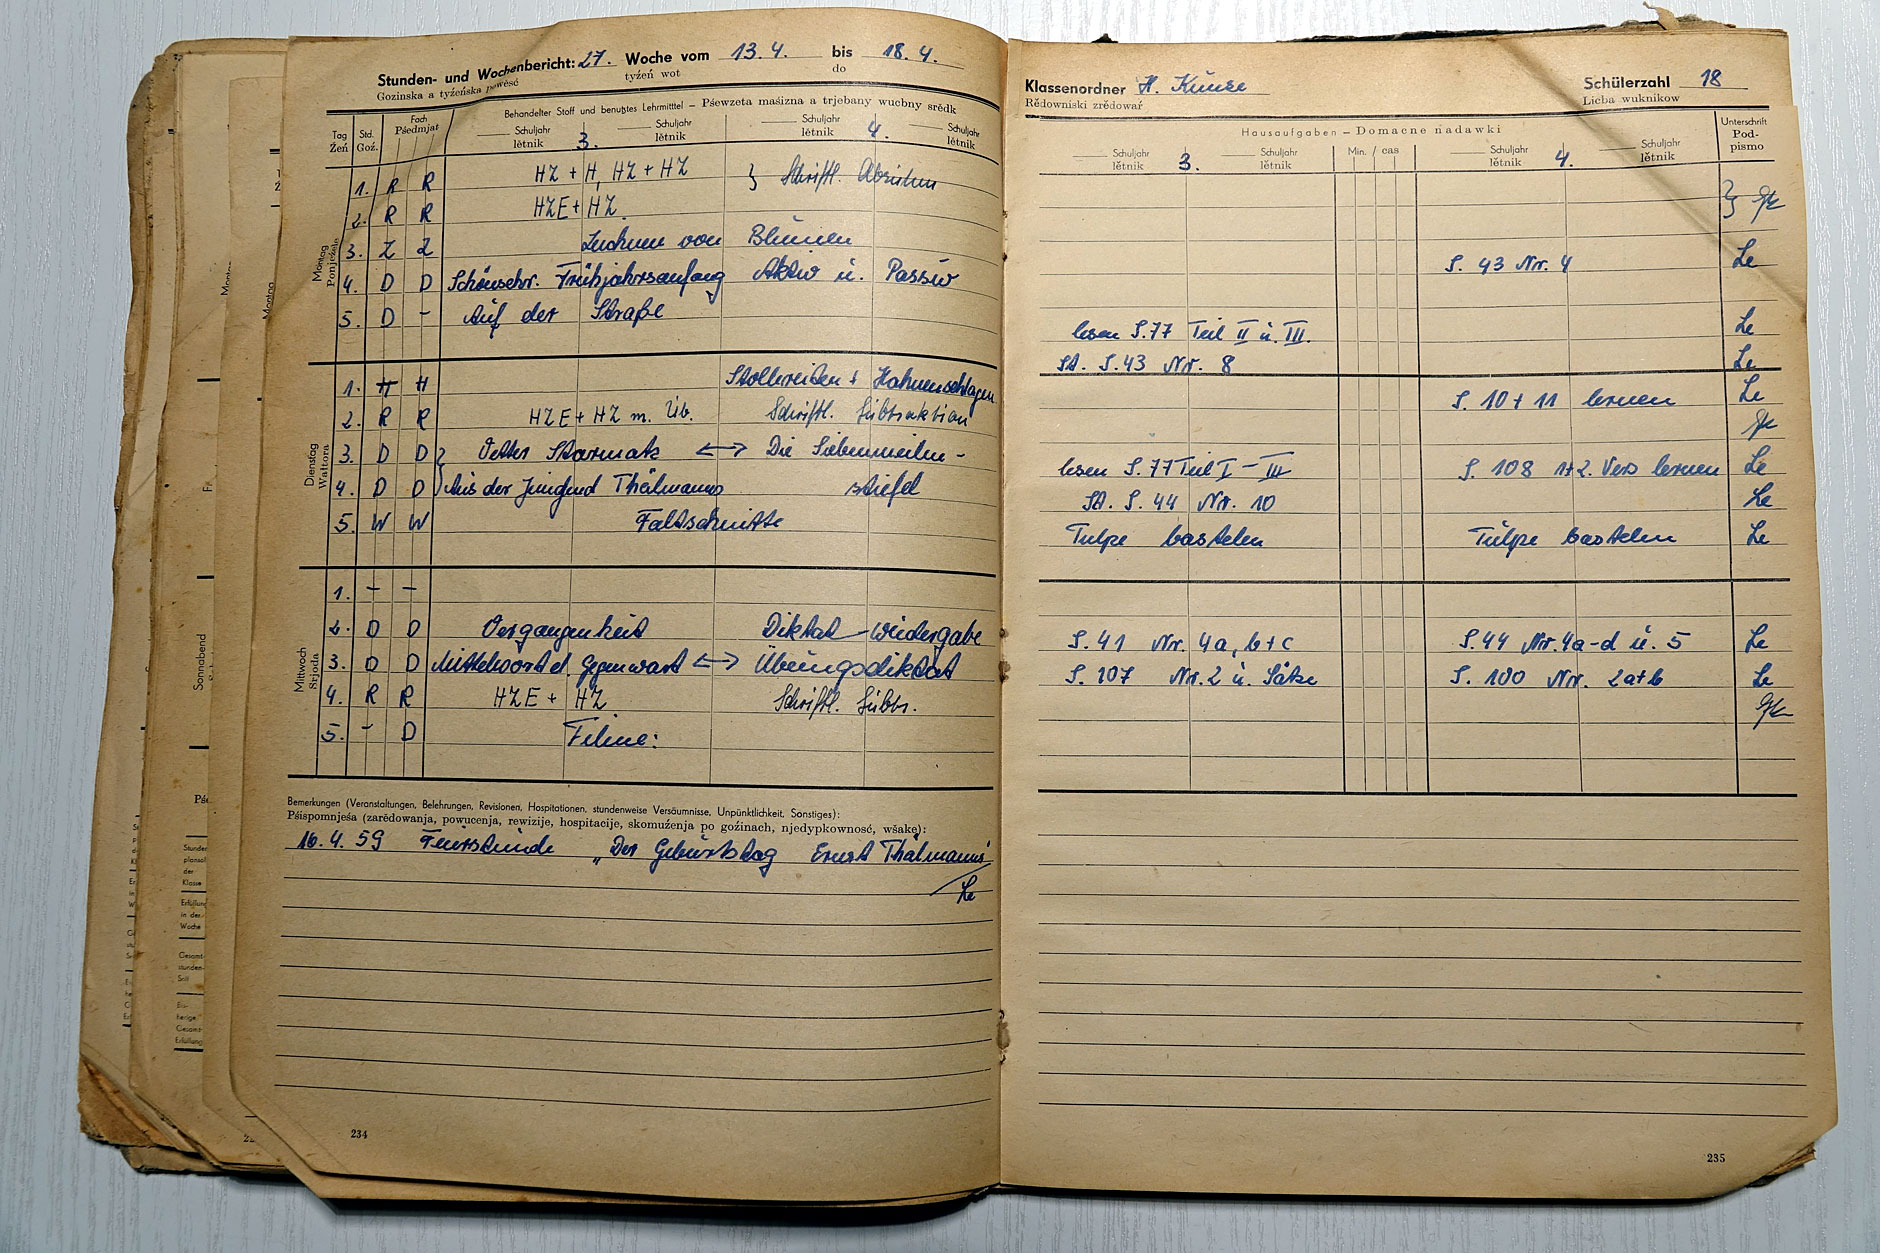 Stunden- und Wochenbericht: 27. Woche vom 13.4. bis 18.4.
Gozinska a tyźeńska powěsć tyźeń wot do
Behandelter Stoff und benutztes Lehrmittel – Pśewzeta maśizna a trjebany wucbny srědk
Tag Std. Fach Schuljahr 3. Schuljahr Schuljahr 4. Schuljahr
Źeń Goź. Pśedmjat lětnik lětnik lětnik lětnik
Montag
Ponjeźele
1. R R HZ + H, HZ + HZ } Schriftl. Abziehen
2. R R HZE + HZ.
3. Z Z Zeichnen von Blumen
4. D D Schönschr. Frühjahrsanfang Aktiv u. Passiv
5. D – Auf der Straße
Dienstag
Wałtora
1. H H Stollreiten + Hahnenschlagen
2. R R HZE + HZ m. Üb. Schriftl. Subtraktion
3. D D } Vetter Starmatz ⟷ Die Siebenmeilen-
4. D D Aus der Jungend Thälmanns stiefel
5. W W Faltschnitte
Mittwoch
Srjoda
1. – –
2. D D Vergangenheit Diktat-wiedergabe
3. D D Mittelwort d. Gegenwart ⟷ Übungsdiktat
4. R R HZE + HZ Schriftl. Subtr.
5. – D Filme:
Bemerkungen (Veranstaltungen, Belehrungen, Revisionen, Hospitationen, stundenweise Versäumnisse, Unpünktlichkeit, Sonstiges):
Pśispomnjeśa (zarědowanja, powucenja, rewizije, hospitacije, skomuźenja po goźinach, njedypkownosć, wšake):
16.4.59 Feierstunde „Der Geburtstag Ernst Thälmanns"
Le
234
Klassenordner H. Kunze Schülerzahl 18
Rědowniski zrědowaŕ Licba wuknikow
Hausaufgaben – Domacne nadawki
Unterschrift
Podpismo
Schuljahr 3. Schuljahr Min. / cas Schuljahr 4. Schuljahr
lětnik lětnik lětnik lětnik
S. 43 Nr. 4 Le
lesen S. 77 Teil II u. III. Le
SA. S. 43 Nr. 8 Le
S. 10 + 11 lernen Le
lesen S. 77 Teil I – III S. 108 1+2. Vers lernen Le
SA. S. 44 Nr. 10 Le
Tulpe bastelen Tulpe bastelen Le
S. 41 Nr. 4a, b + c S. 44 Nr. 4a-d u. 5 Le
S. 107 Nr. 2 u. Sätze S. 100 Nr. 2a+b Le
235
Sonnabend
Montag